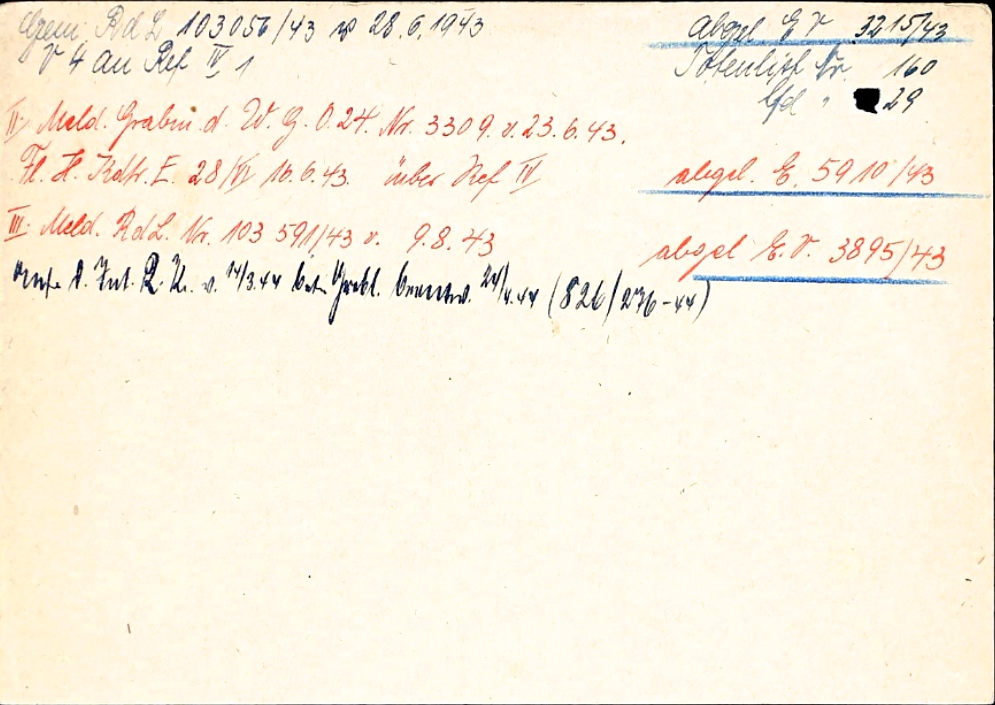 Gem. RdL 103056/43 v 28.6.1943 abgel E V 3215/43
V 4 an Ref IV 1 Totenliste Nr. 160
lfd " 29
II: Meld. Grabm. d. W. G. O. 24. Nr. 3309. v. 23.6.43.
Fl. H. Kdtr. E. 28/VI 16.6.43. über Ref IV abgel. E. 5910/43
III: Meld. RdL. Nr. 103 591/43 v. 9.8.43 abgel E.V. 3895/43
d. Int. R. K. v. 14/3.44 betr. Grabl. beantw. 24/4.44 (826/236-44)